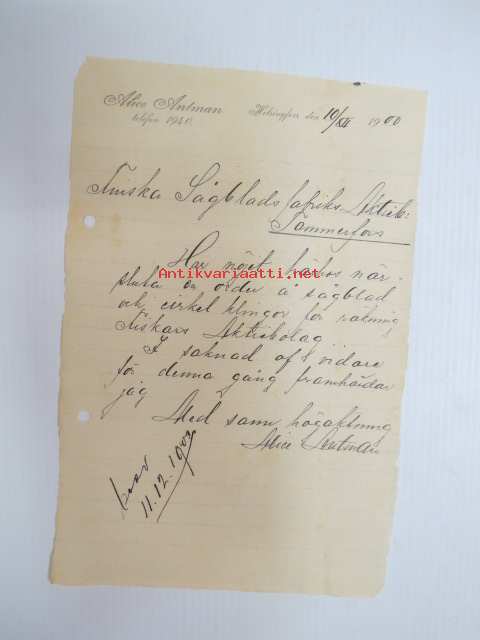 Alice Antman
telefon 1940.
Helsingfors den 10/XII 1900
Finska Sågblads fabriks Aktieb:
Tammerfors
Har nöjet härhos när-
sluta en order å sågblad
och cirkel klingor för räkning
Fiskars Aktiebolag.
I saknad af vidare
för denna gång framhärdar
jag
Med sann högaktning
Alice Antman
svar
11.12.1900
Antikvariaatti.net